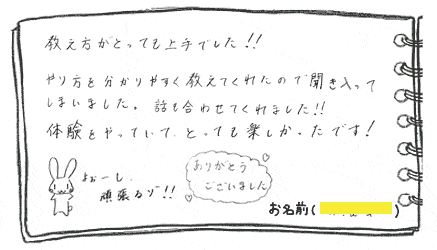 教え方がとっても上手でした!!
やり方を分かりやすく教えてくれたので聞き入って
しまいました。話も合わせてくれました!!
体験をやっていて、とっても楽しかったです!
よぉーし、
頑張るゾ!!
ありがとう
ございました
お名前(
)